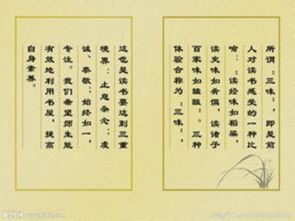 所谓"三味",即是前
人对读书感受的一种比
喻:"读经味如稻粱,
读史味如肴馔,读诸子
百家味如醯醢"。三种
体验合称为"三味",
这也是读书要达到三重
境界:止息杂念、虔
诚、恭敬;始终如一,
专注。我们希望师生能
有效地利用书屋,提高
自身素养。